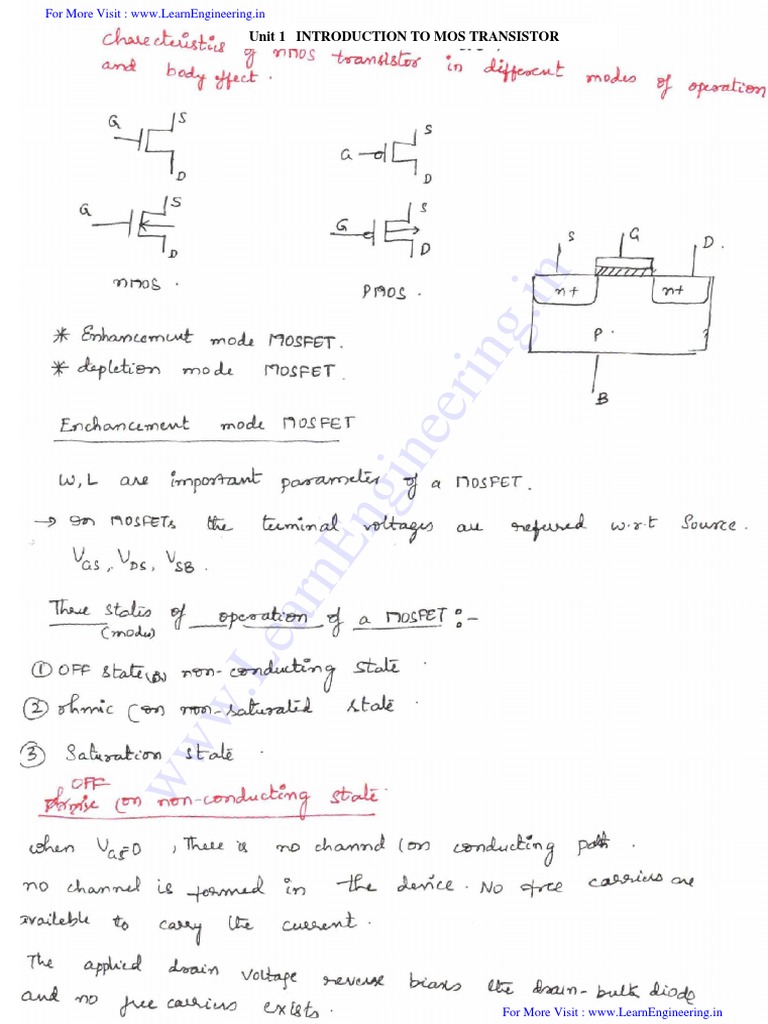 For More Visit : www.LearnEngineering.in
Unit 1 INTRODUCTION TO MOS TRANSISTOR
Charecteristics of nMOS transistor in different modes of operation
and body effect.
G S D
G S D
G S D
G S D
nMOS.
PMOS.
S G D.
n+ n+
P.
B
* Enhancement mode MOSFET.
* depletion mode MOSFET.
Enchancement mode MOSFET
W,L are important parameters of a MOSFET.
→ In MOSFETs the terminal voltages are referred w.r.t Source.
VGS, VDS, VSB.
Three states of operation of a MOSFET:-
(modes)
① OFF state (or) non-conducting state.
② ohmic (or) non-saturated state.
③ Saturation state.
OFF
(or) non-conducting state
when VGS=0, There is no channel (or) conducting path.
no channel is formed in the device. No free carriers are
available to carry the current.
The applied drain voltage reverse biases the drain-bulk diode
and no free carriers exists.
For More Visit : www.LearnEngineering.in
www.LearnEngineering.in